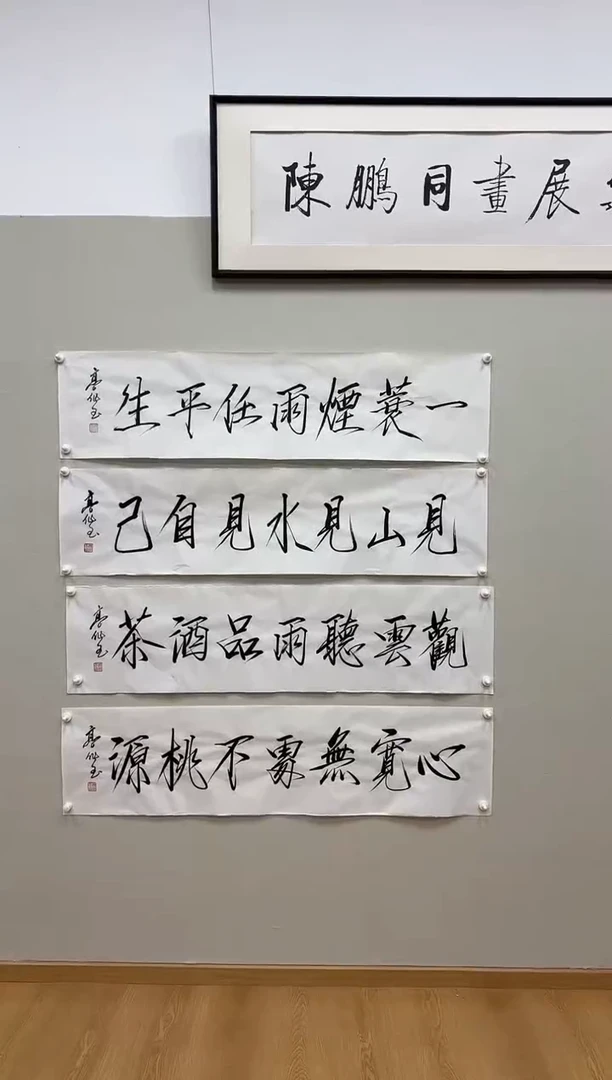 陳鵬同畫展
一蓑煙雨任平生
見山見水見自己
觀雲聽雨品酒茶
心寬無處不桃源